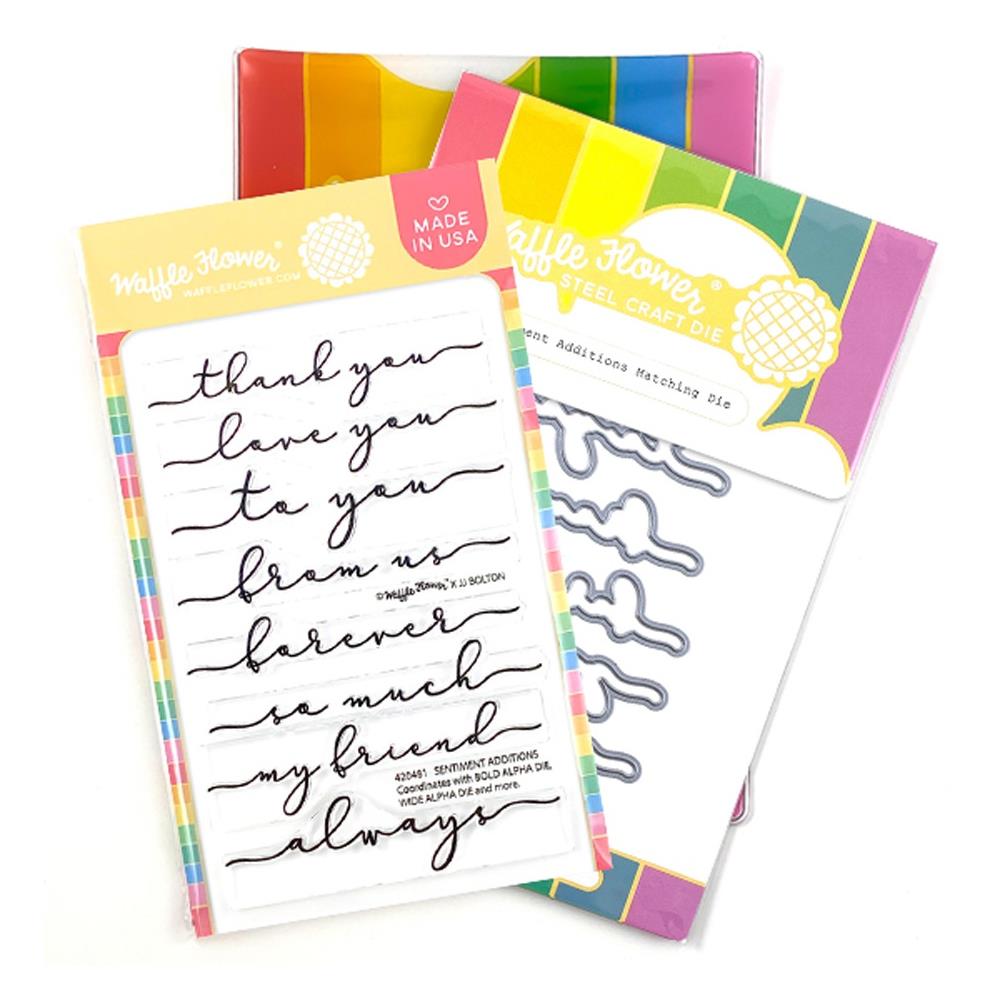 Waffle Flower®
WAFFLEFLOWER.COM
MADE
IN USA
thank you
love you
to you
from us
© Waffle Flower™ X JJ BOLTON
forever
so much
my friend
420481 SENTIMENT ADDITIONS
Coordinates with BOLD ALPHA DIE,
WIDE ALPHA DIE and more.
always
Waffle Flower®
STEEL CRAFT DIE
Additions Matching Die